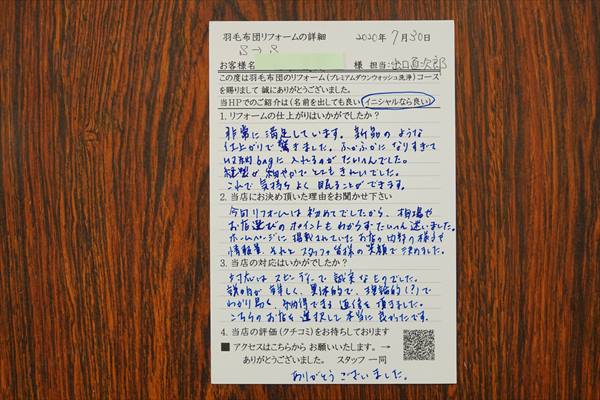 羽毛布団リフォームの詳細 2020年 7月30日
S→S
お客様名 様 担当:出口直次郎
この度は羽毛布団のリフォーム(プレミアムダウンウォッシュ洗浄)コース
を賜りまして 誠にありがとうございました。
当HPでのご紹介は(名前を出しても良い イニシャルなら良い)
1. リフォームの仕上がりはいかがでしたか?
非常に満足しています。新品のような
仕上がりで驚きました。ふかふかになりすぎて
収納bagに入れるのがたいへんでした。
縫製が細やかでとてもきれいでした。
これで気持ちよく眠ることができます。
2. 当店にお決め頂いた理由をお聞かせ下さい
今回リフォームは初めてでしたから、相場や
お店選びのポイントもわからずたいへん迷いました。
ホームページに掲載されていたお店の内部の様子や
情報量、それとスタッフ皆様の笑顔で決めました。
3. 当店の対応はいかがでしたか?
対応はスピーディーで誠実なものでした。
説明が詳しく、具体的で、理論的(?)で
わかり易く、納得できる返信を頂きました。
こちらのお店を選択して本当に良かったです。
4. 当店の評価(クチコミ)をお待ちしております
■ アクセスはこちらから お願いいたします。 →
ありがとうございました。 スタッフ一同
ありがとうございました。